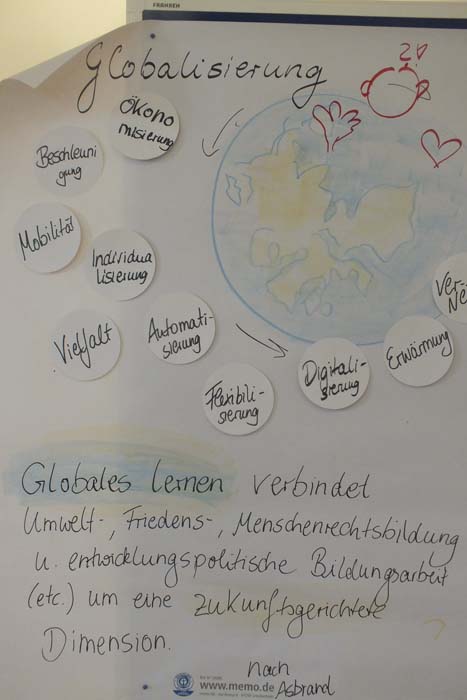 FRANKEN
Globalisierung
2
Ökono
misierung
Beschleuni
gung
Mobilität
Individua
lisierung
Vielfalt
Automati-
sierung
Flexibili-
sierung
Digitali-
sierung
Erwärmung
Ver-
Ne
Globales lernen verbindet
Umwelt-, Friedens-, Menschenrechtsbildung
u. entwicklungspolitische Bildungsarbeit
(etc.) um eine zukunftsgerichtete
Dimension.
nach
Asbrand
www.memo.de